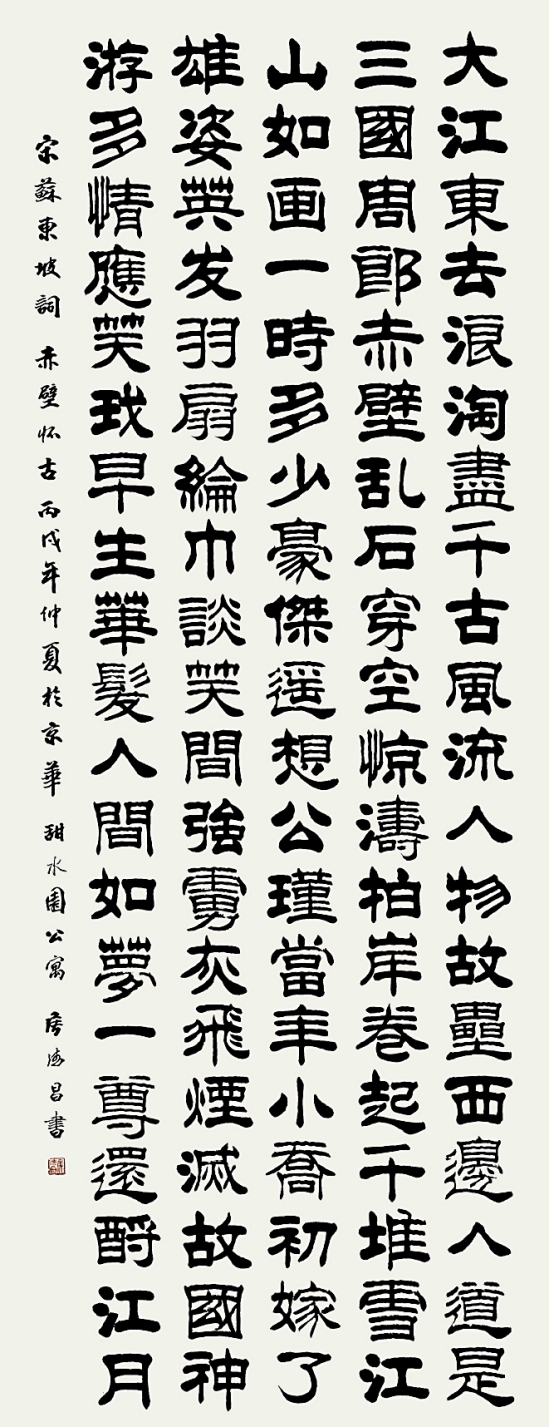 大江東去浪淘盡千古風流人物故壘西邊人道是
三國周郎赤壁乱石穿空惊濤拍岸卷起千堆雪江
山如画一時多少豪傑遥想公瑾當年小喬初嫁了
雄姿英发羽扇綸巾談笑間強虜灰飛煙滅故國神
游多情應笑我早生華髮人間如夢一尊還酹江月
宋蘇東坡詞 赤壁怀古 丙戌年仲夏於京華 甜水園公寓 昌書